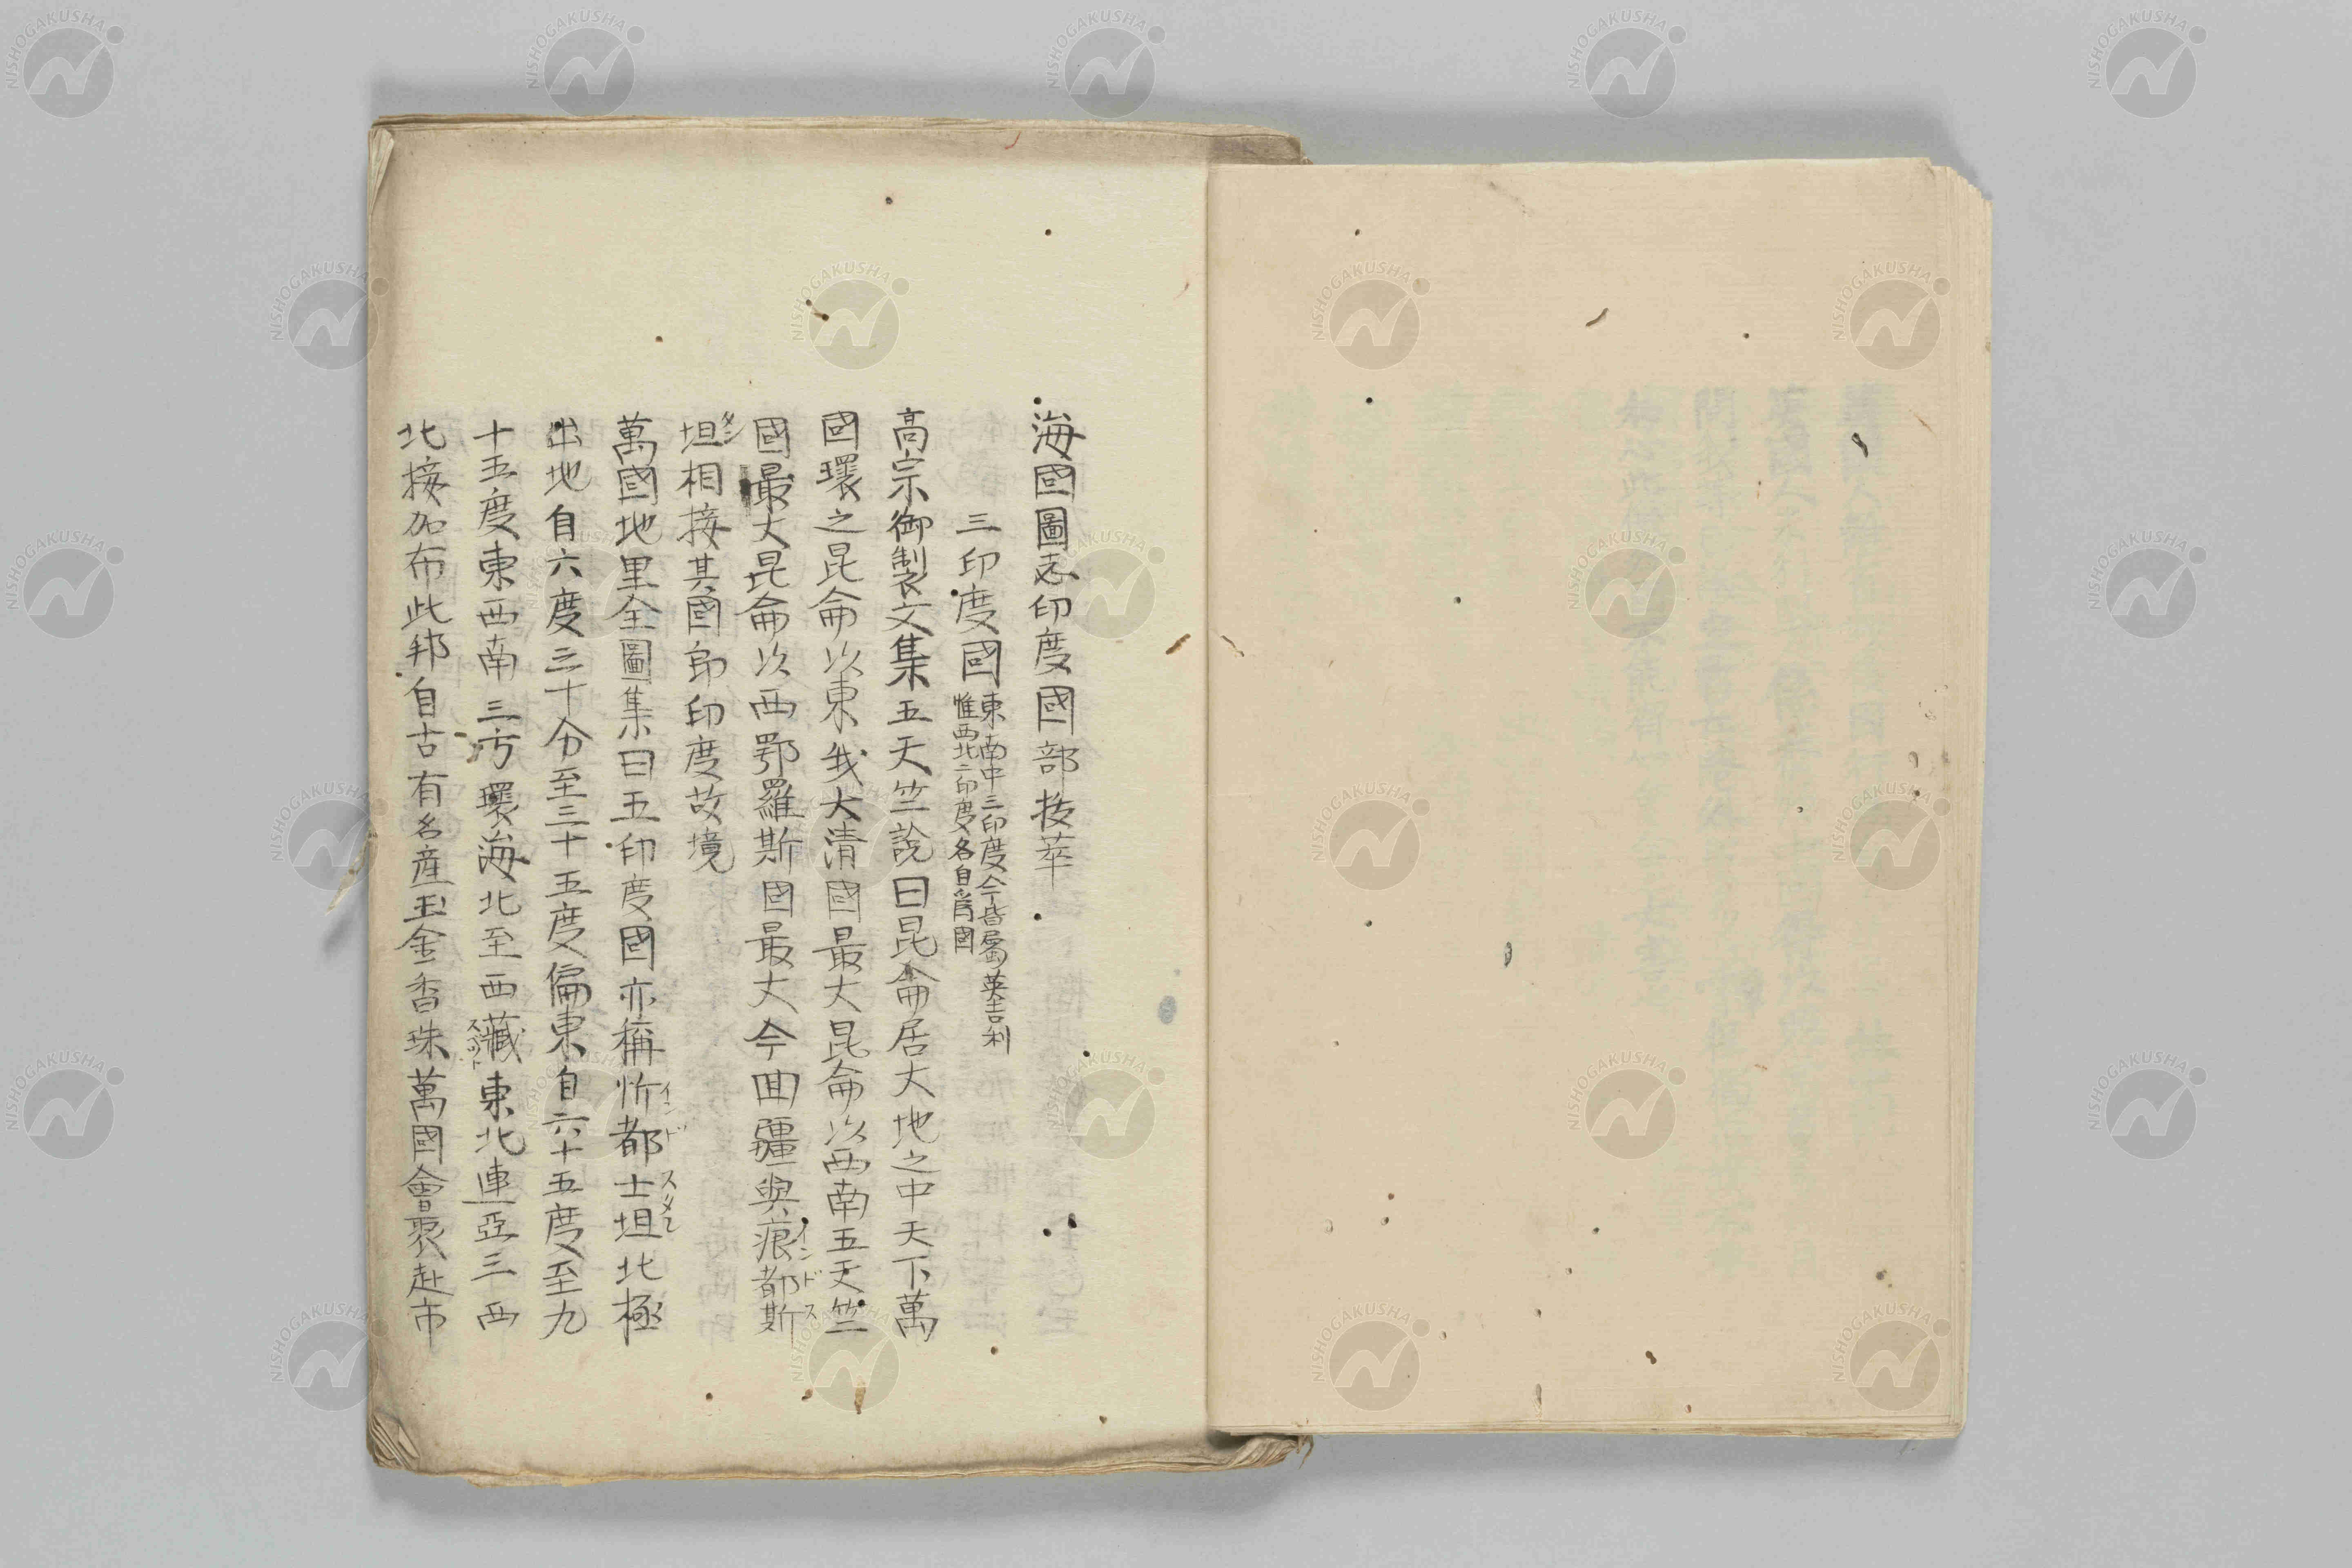 海國圖志印度國部抜萃
三印度國 東南中三印度今皆屬英吉利
惟西北二印度各自爲國
高宗御製文集五天竺說曰昆侖居大地之中天下萬
國環之昆侖以東我大清國最大昆侖以西南五天竺
國最大昆侖以西鄂羅斯國最大今回疆與痕都斯
インドス
坦相接其國即印度故境
タン
萬國地里全圖集曰五印度國亦稱忻都士坦北極
インド スタン
出地自六度三十分至三十五度偏東自六十五度至九
十五度東西南三方環海北至西藏東北連亞三西
北接加布此邦自古有名產玉金香珠萬國會聚赴市
NISHOGAKUSHA